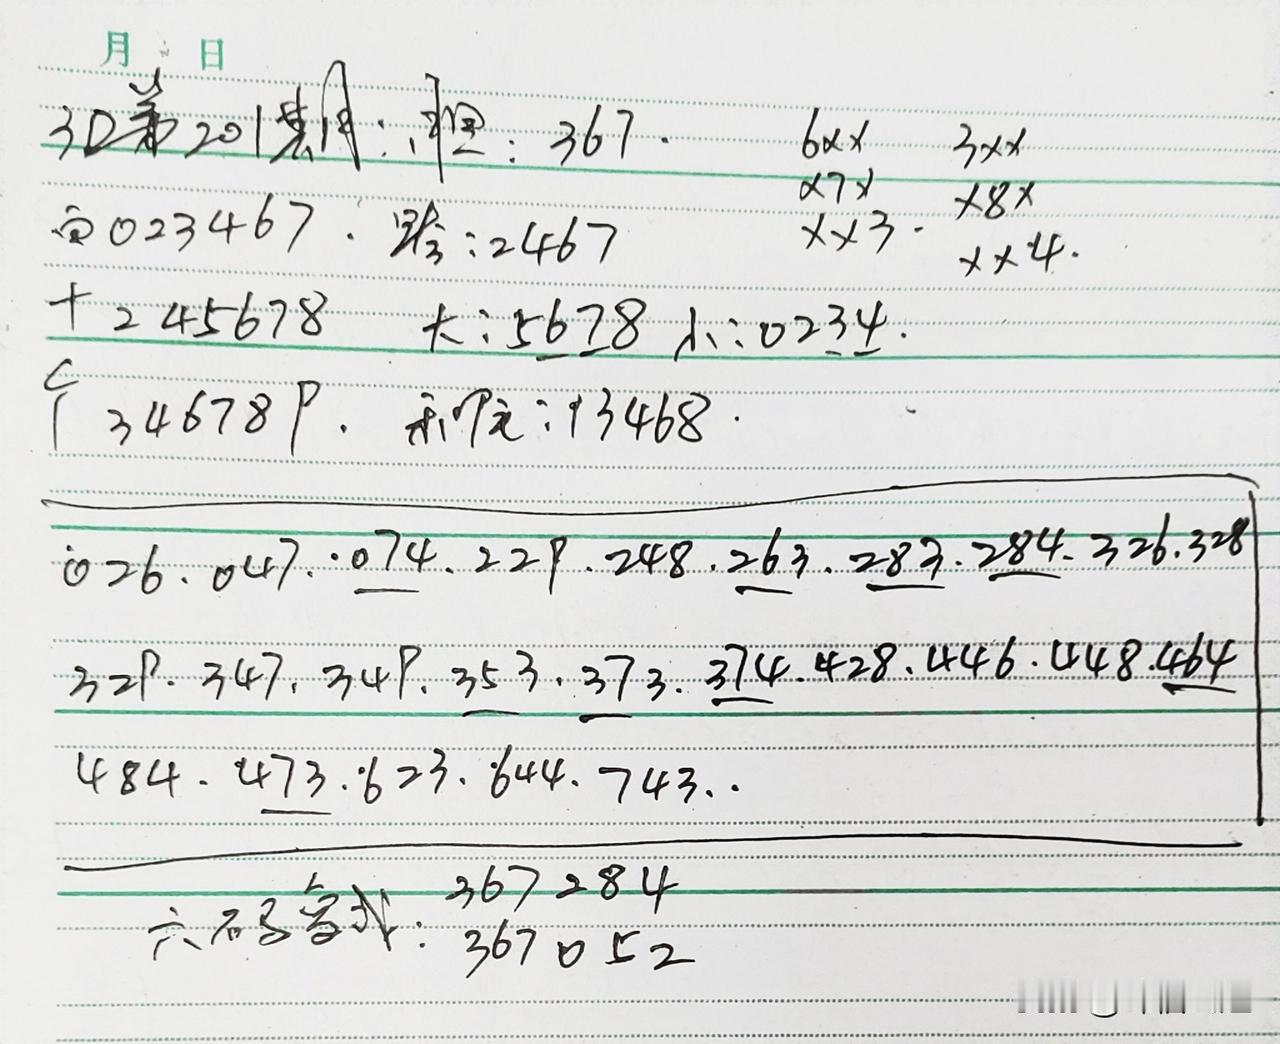 月 日
3D第201期:胆:367. 6xx 3xx
x7x x8x
百023467. 跨:2467 xx3. xx4.
十245678 大:5678 小:0234.
个346789. 和值:13468.
026.047.074.229.248.263.283.284.326.328
329.347.349.353.373.374.428.446.448.464
484.473.623.644.743..
六码复式:367284
367052